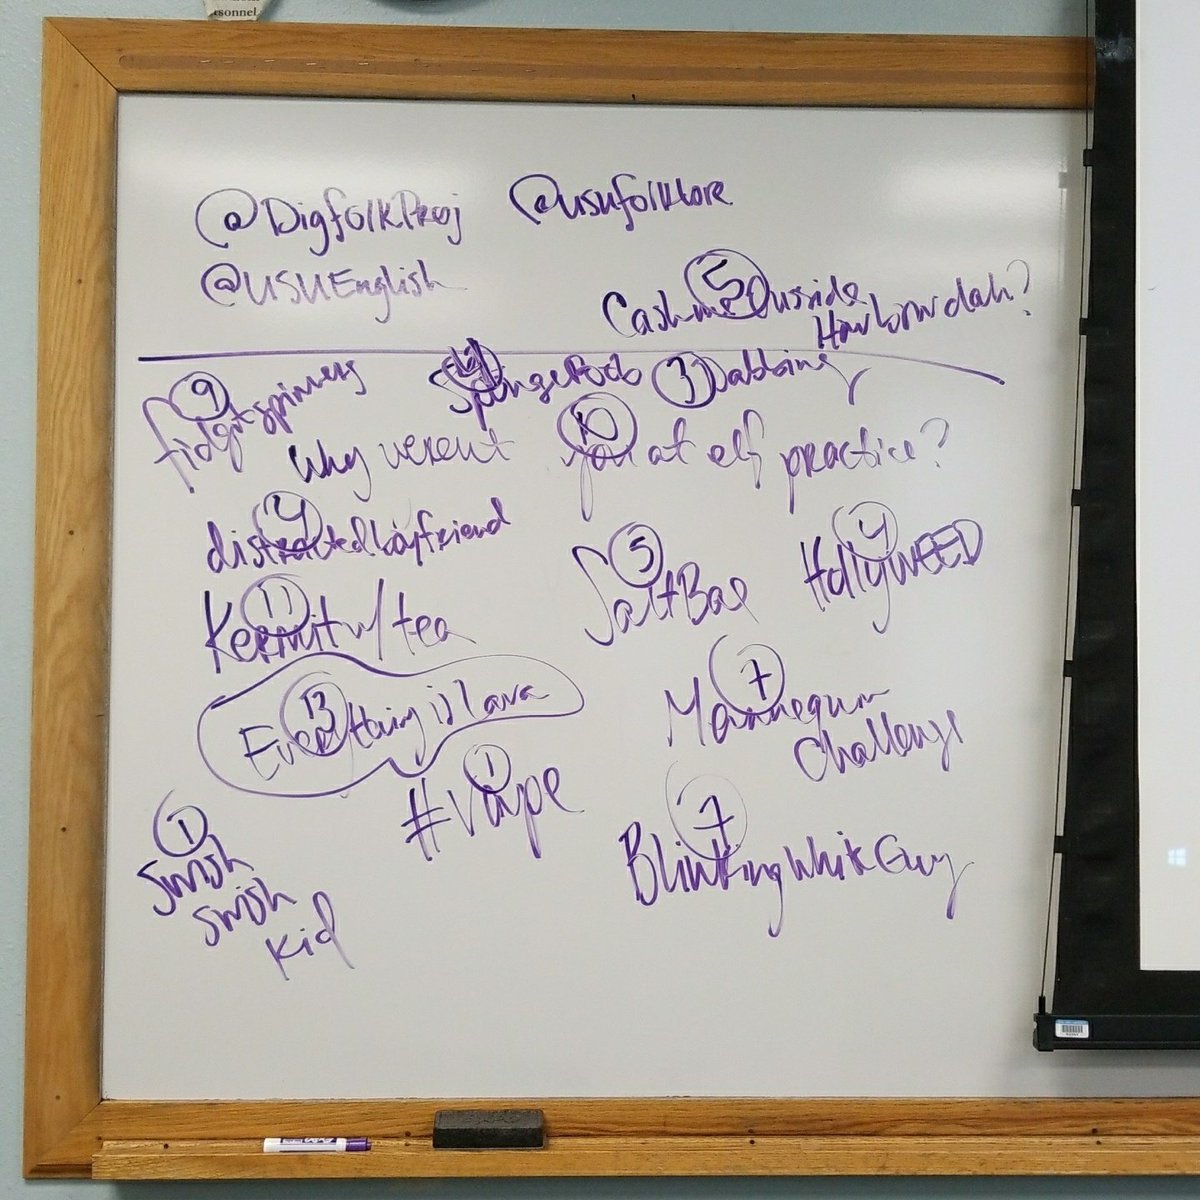 sonnel
@DigfolkProj @usufolklore
@USUEnglish
5
Cash me Ousside
How bow dah?
9
fidget spinners
SpongeBob
3 Dabbing
10
Why werent you at elf practice?
4
distracted boyfriend
5
SaltBae
4
HollyWEED
11
Kermit w/ tea
13
Everything is lava
7
Mannequin
Challenge
1
#Vape
1
Swish
Swish
Kid
7
Blinking White Guy